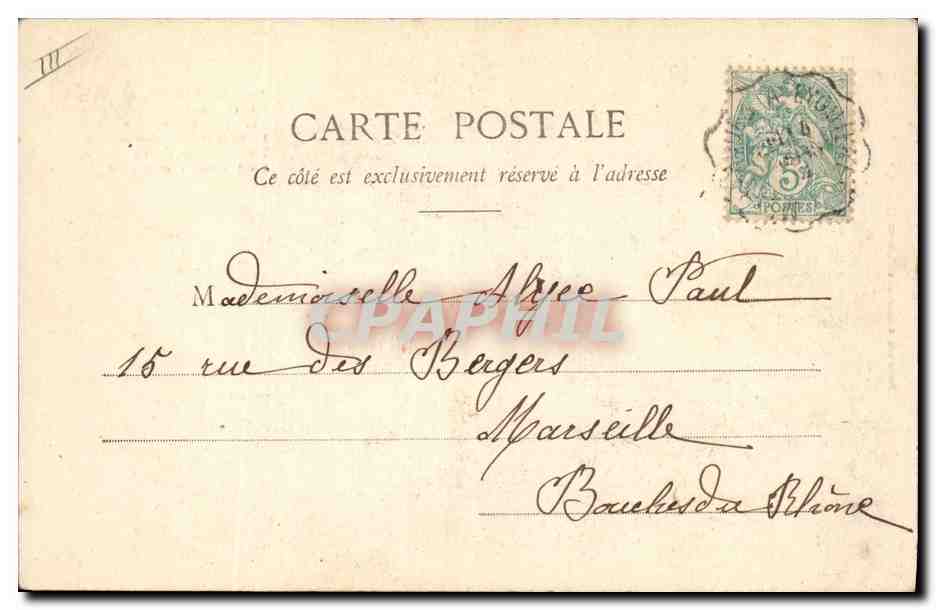 III
CARTE POSTALE
Ce côté est exclusivement réservé à l'adresse
5
POSTES
Mademoiselle Alyce Paul
CPAPHIL
15 rue des Bergers
Marseille
Bouches du Rhône